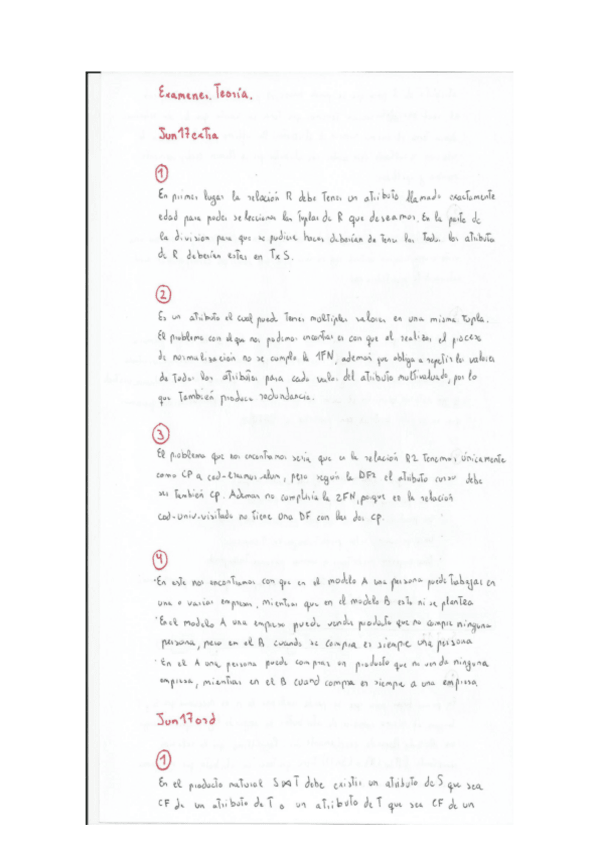 Examenes Teoría.
Jun17extra
1
En primer lugar la relación R debe tener un atributo llamado exactamente
edad para poder seleccionar las tuplas de R que deseamos. En la parte de
la division para que se pudiese hacer deberían de tener los Todos los atributos
de R deberían estar en TxS.
2
Es un atributo el cual puede tener multiples valores en una misma tupla.
El problema con el que nos podemos encontrar es con que al realizar el proceso
de normalización no se cumpla la 1FN, además que obliga a repetir los valores
de todos los atributos para cada valor del atributo multivaluado, por lo
que también produce redundancia.
3
El problema que nos encontramos sería que en la relación R2 tenemos únicamente
como CP a cod-examen-alum, pero según la DF2 el atributo curso debe
ser también cp. Ademas no cumpliría la 2FN, porque en la relacion
cod-univ-visitado no tiene una DF con las dos cp.
4
·En este nos encontramos con que en el modelo A una persona puede trabajar en
una o varias empresas, mientras que en el modelo B esto ni se plantea
·En el modelo A una empresa puede vender producto que no compre ninguna
persona, pero en el B cuando se compra es siempre una persona
·En el A una persona puede comprar un producto que no venda ninguna
empresa, mientras en el B cuand compra es siempre a una empresa
Jun17ord
1
En el producto natural S⋈T debe existir un atributo de S que sea
CF de un atributo de T o un atributo de T que sea CF de un